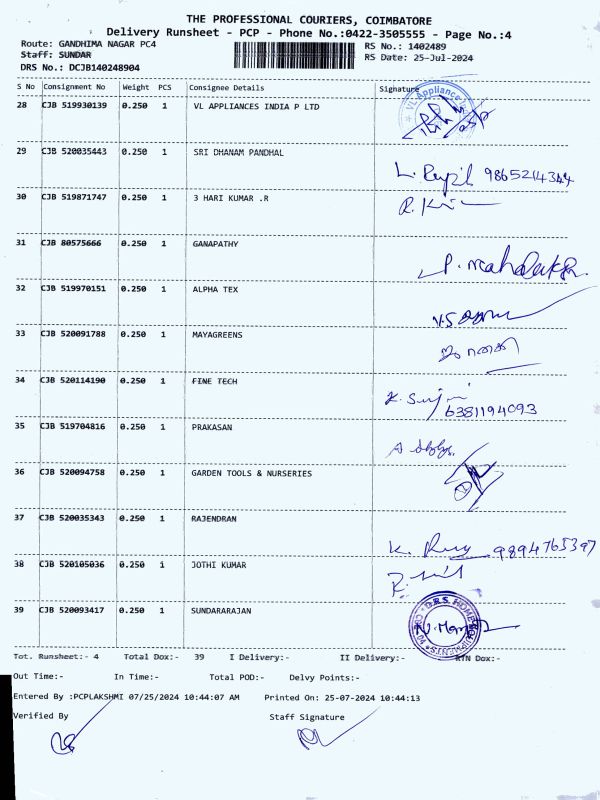 THE PROFESSIONAL COURIERS, COIMBATORE
Delivery Runsheet - PCP - Phone No.:0422-3505555 - Page No.:4
Route: GANDHIMA NAGAR PC4 RS No.: 1402489
Staff: SUNDAR RS Date: 25-Jul-2024
DRS No.: DCJB140248904
S No Consignment No Weight PCS Consignee Details Signature
28 CJB 519930139 0.250 1 VL APPLIANCES INDIA P LTD
VL Appliance
29 CJB 520035443 0.250 1 SRI DHANAM PANDHAL
9865214344
30 CJB 519871747 0.250 1 3 HARI KUMAR .R
31 CJB 80575666 0.250 1 GANAPATHY
32 CJB 519970151 0.250 1 ALPHA TEX
33 CJB 520091788 0.250 1 MAYAGREENS
34 CJB 520114190 0.250 1 FINE TECH
6381194093
35 CJB 519704816 0.250 1 PRAKASAN
36 CJB 520094758 0.250 1 GARDEN TOOLS & NURSERIES
37 CJB 520035343 0.250 1 RAJENDRAN
9894765397
38 CJB 520105036 0.250 1 JOTHI KUMAR
39 CJB 520093417 0.250 1 SUNDARARAJAN
D.R.S. HOME
Tot. Runsheet:- 4 Total Dox:- 39 I Delivery:- II Delivery:- RTN Dox:-
Out Time:- In Time:- Total POD:- Delvy Points:-
Entered By :PCPLAKSHMI 07/25/2024 10:44:07 AM Printed On: 25-07-2024 10:44:13
Verified By Staff Signature